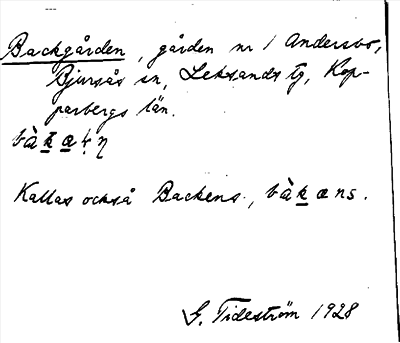 Backgården, gården nr 1 Andersbo,
Bjursås sn, Leksands tg, Kop-
parbergs län.
Kallas också Backens, bàkæns.
G. Tideström 1928